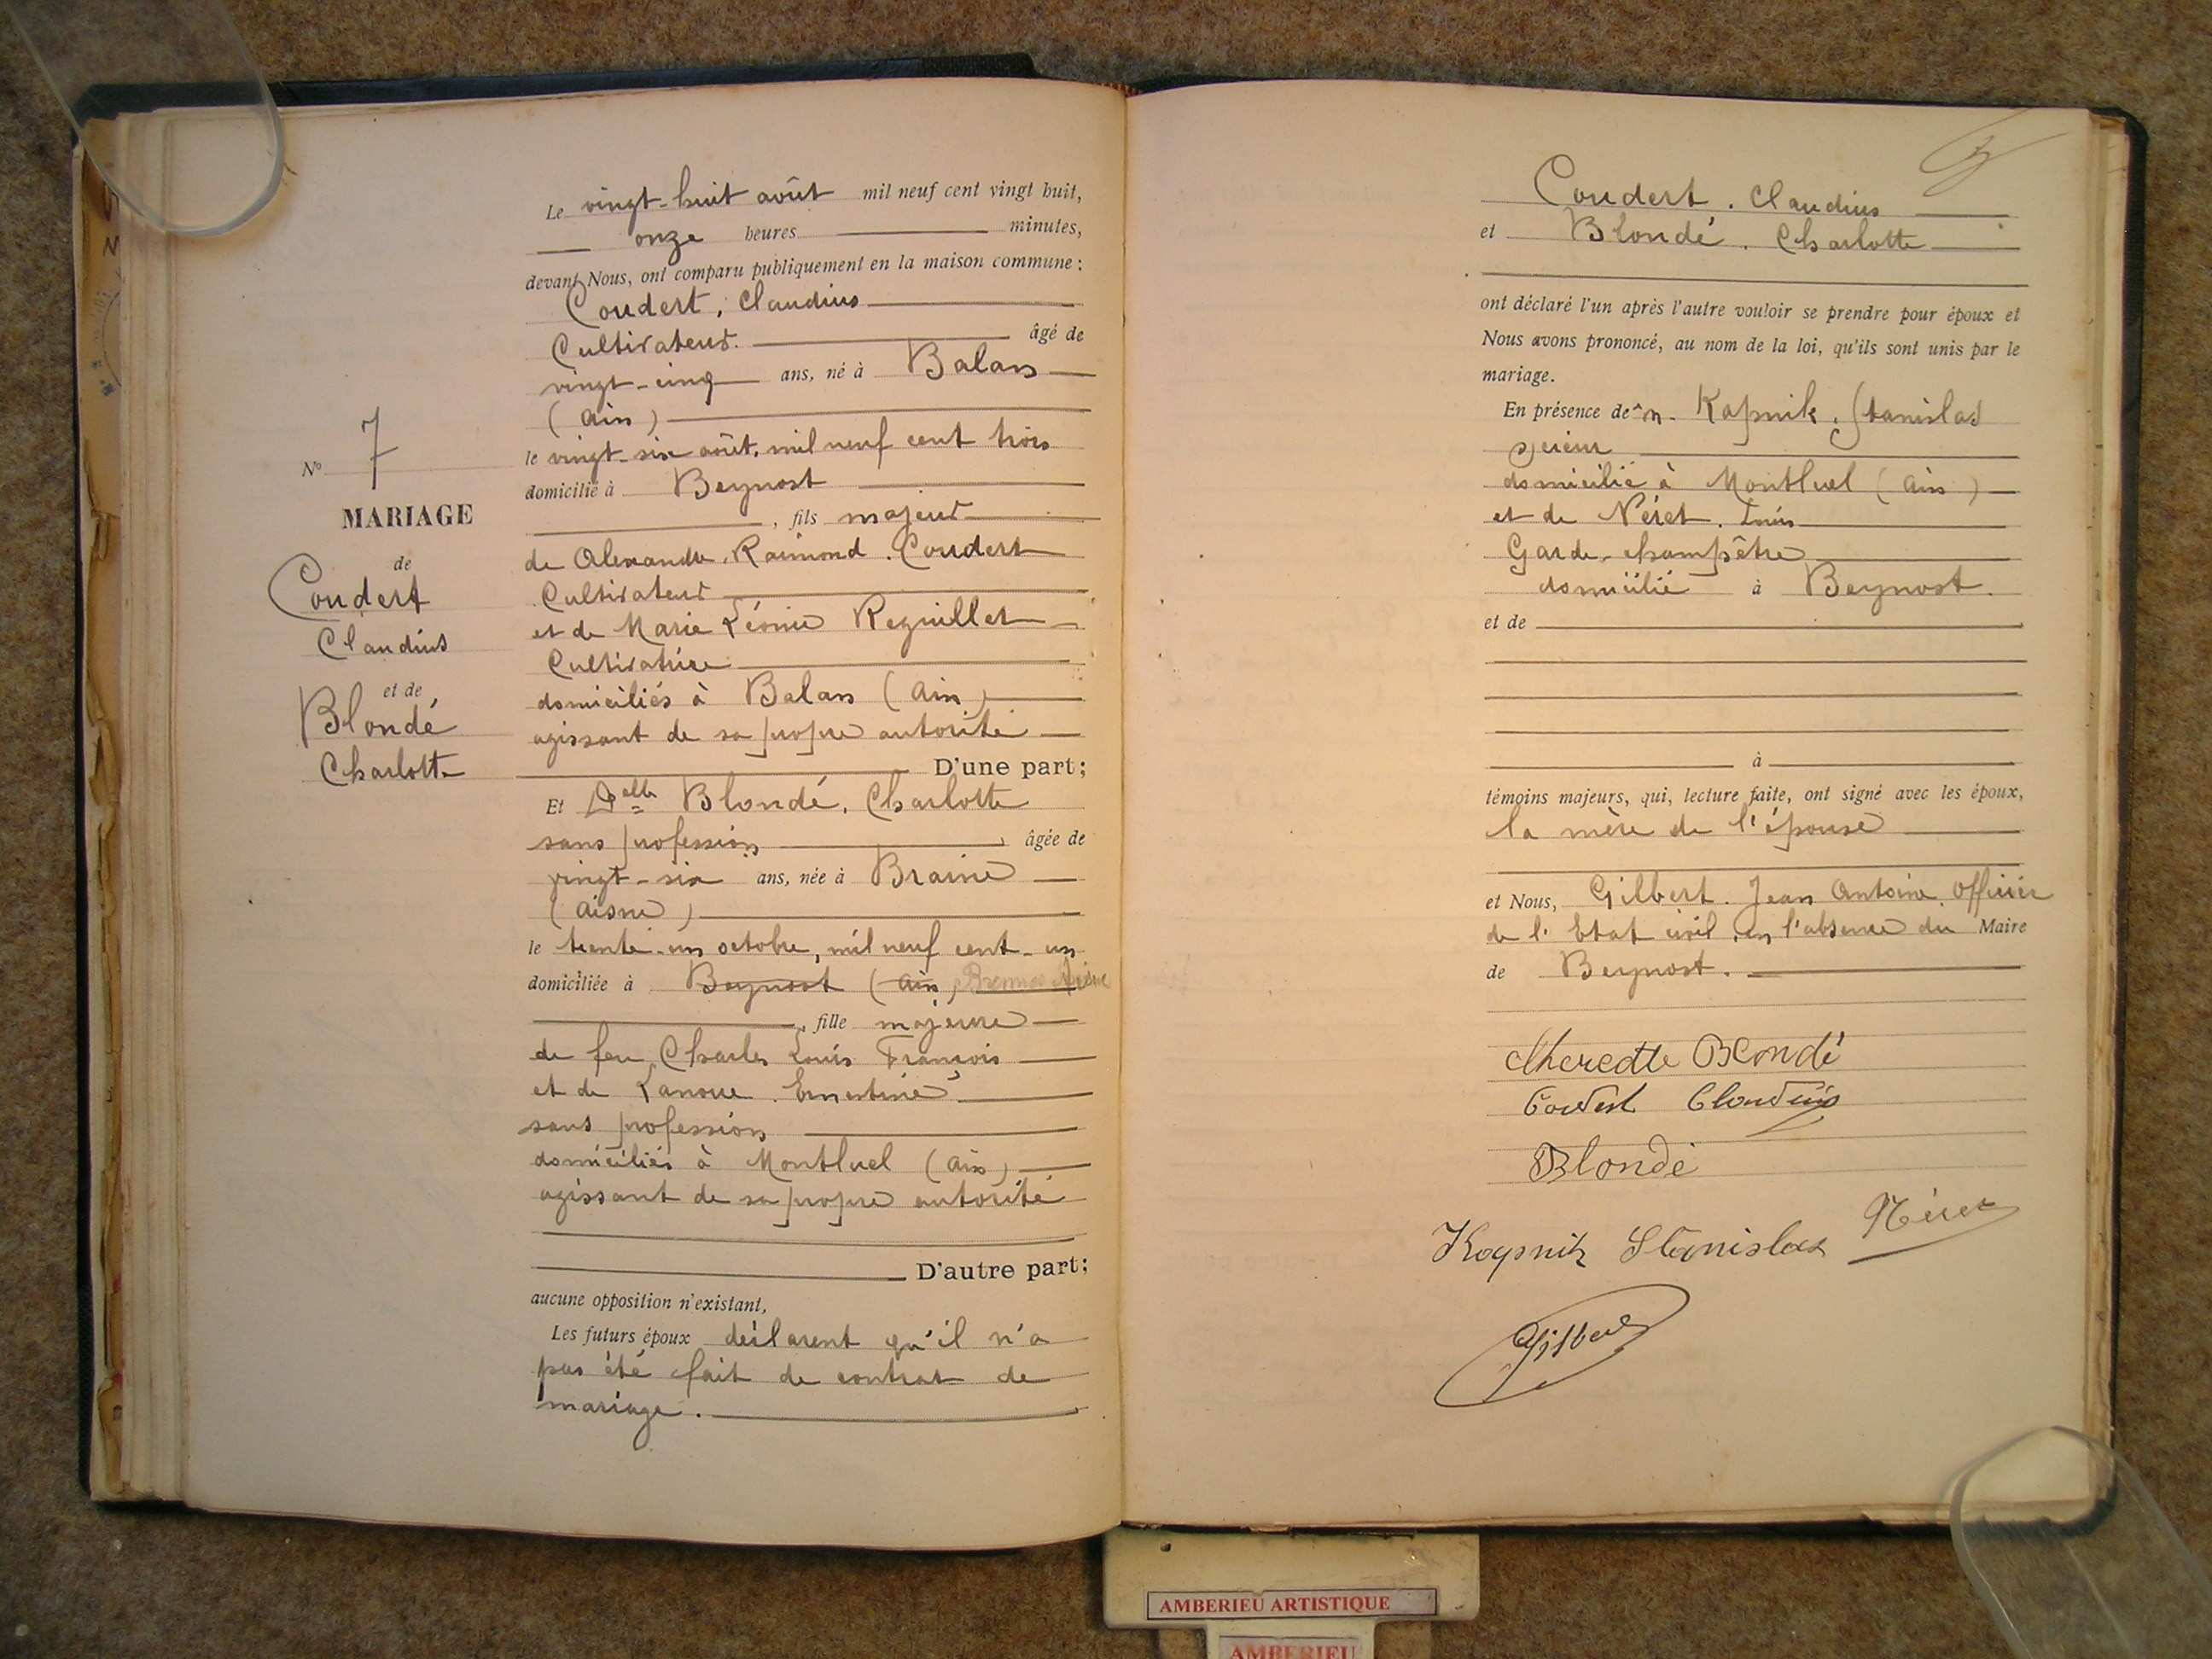 Le vingt-huit août mil neuf cent vingt huit,
onze heures minutes,
devant Nous, ont comparu publiquement en la maison commune :
Coudert, Claudius
Cultivateur. âgé de
vingt-cinq ans, né à Balan
(Ain)
le vingt-six août, mil neuf cent trois
domicilié à Beynost
, fils majeur
de Alexandre, Raimond. Coudert
Cultivateur
et de Marie Léonie Reguillet
Cultivatrice
domiciliés à Balan (Ain)
agissant de sa propre autorité
D'une part;
Et Delle Blondé, Charlotte
sans profession , âgée de
vingt-six ans, née à Braine
(Aisne)
le trente-un octobre, mil neuf cent-un
domiciliée à Beynost (Ain)
, fille majeure
de feu Charles Louis François
et de Lanoue. Ernestine
sans profession
domiciliés à Montluel (Ain)
agissant de sa propre autorité
D'autre part;
aucune opposition n'existant,
Les futurs époux déclarent qu'il n'a
pas été fait de contrat de
mariage.
No 7
MARIAGE
de
Coudert
Claudius
et de
Blondé
Charlotte
Coudert. Claudius
et Blondé. Charlotte
ont déclaré l'un après l'autre vouloir se prendre pour époux et
Nous avons prononcé, au nom de la loi, qu'ils sont unis par le
mariage.
En présence de m. Kapnik, Stanislas
domicilié à Montluel (Ain)
et de Néret. Louis
Garde-champêtre
domicilié à Beynost.
et de
à
témoins majeurs, qui, lecture faite, ont signé avec les époux,
la mère de l'épouse
et Nous, Gilbert. Jean Antoine. Officier
de l'Etat civil, en l'absence du Maire
de Beynost.
Blondé
Claudius
Blondé
Stanislas Néret
Gilbert
AMBERIEU ARTISTIQUE
AMBERIEU